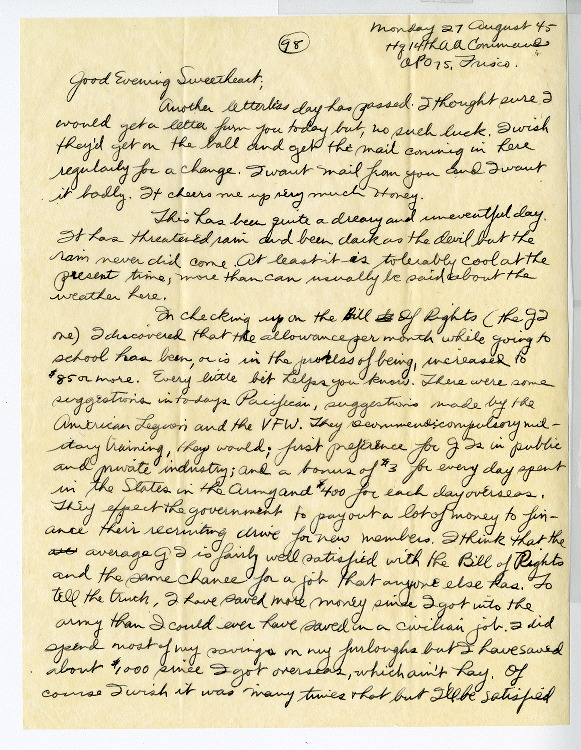 Monday 27 August 45
98
Hq 14th AA Command
APO 75, Frisco.
Good Evening Sweetheart;
Another letterless day has passed. I thought sure I
would get a letter from you today but, no such luck. I wish
they'd get on the ball and get the mail coming in here
regularly for a change. I want mail from you and I want
it badly. It cheers me up very much Honey.
This has been quite a dreary and uneventful day.
It has threatened rain and been dark as the devil but the
rain never did come. At least it is tolerably cool at the
present time, more than can usually be said about the
weather here.
In checking up on the Bill Of Rights (the GI
one) I discovered that the allowance per month while going to
school has been, or is in the process of being, increased to
$85 or more. Every little bit helps you know. There were some
suggestions in todays Pacifican, suggestions made by the
American Legion and the VFW. They recommend compulsory mil-
itary training, they would; first preference for GIs in public
and private industry; and a bonus of $3 for every day spent
in the States in the Army and $400 for each day overseas.
They expect the government to pay out a lot of money to fin-
ance their recruiting drive for new members. I think that the
average GI is fairly well satisfied with the Bill of Rights
and the same chance for a job that anyone else has. To
tell the truck, I have saved more money since I got into the
army than I could ever have saved in a civilian job. I did
spend most of my savings on my furloughs but I have saved
about $1,000 since I got overseas, which ain't hay. Of
course I wish it was many times that but I'll be satisfied